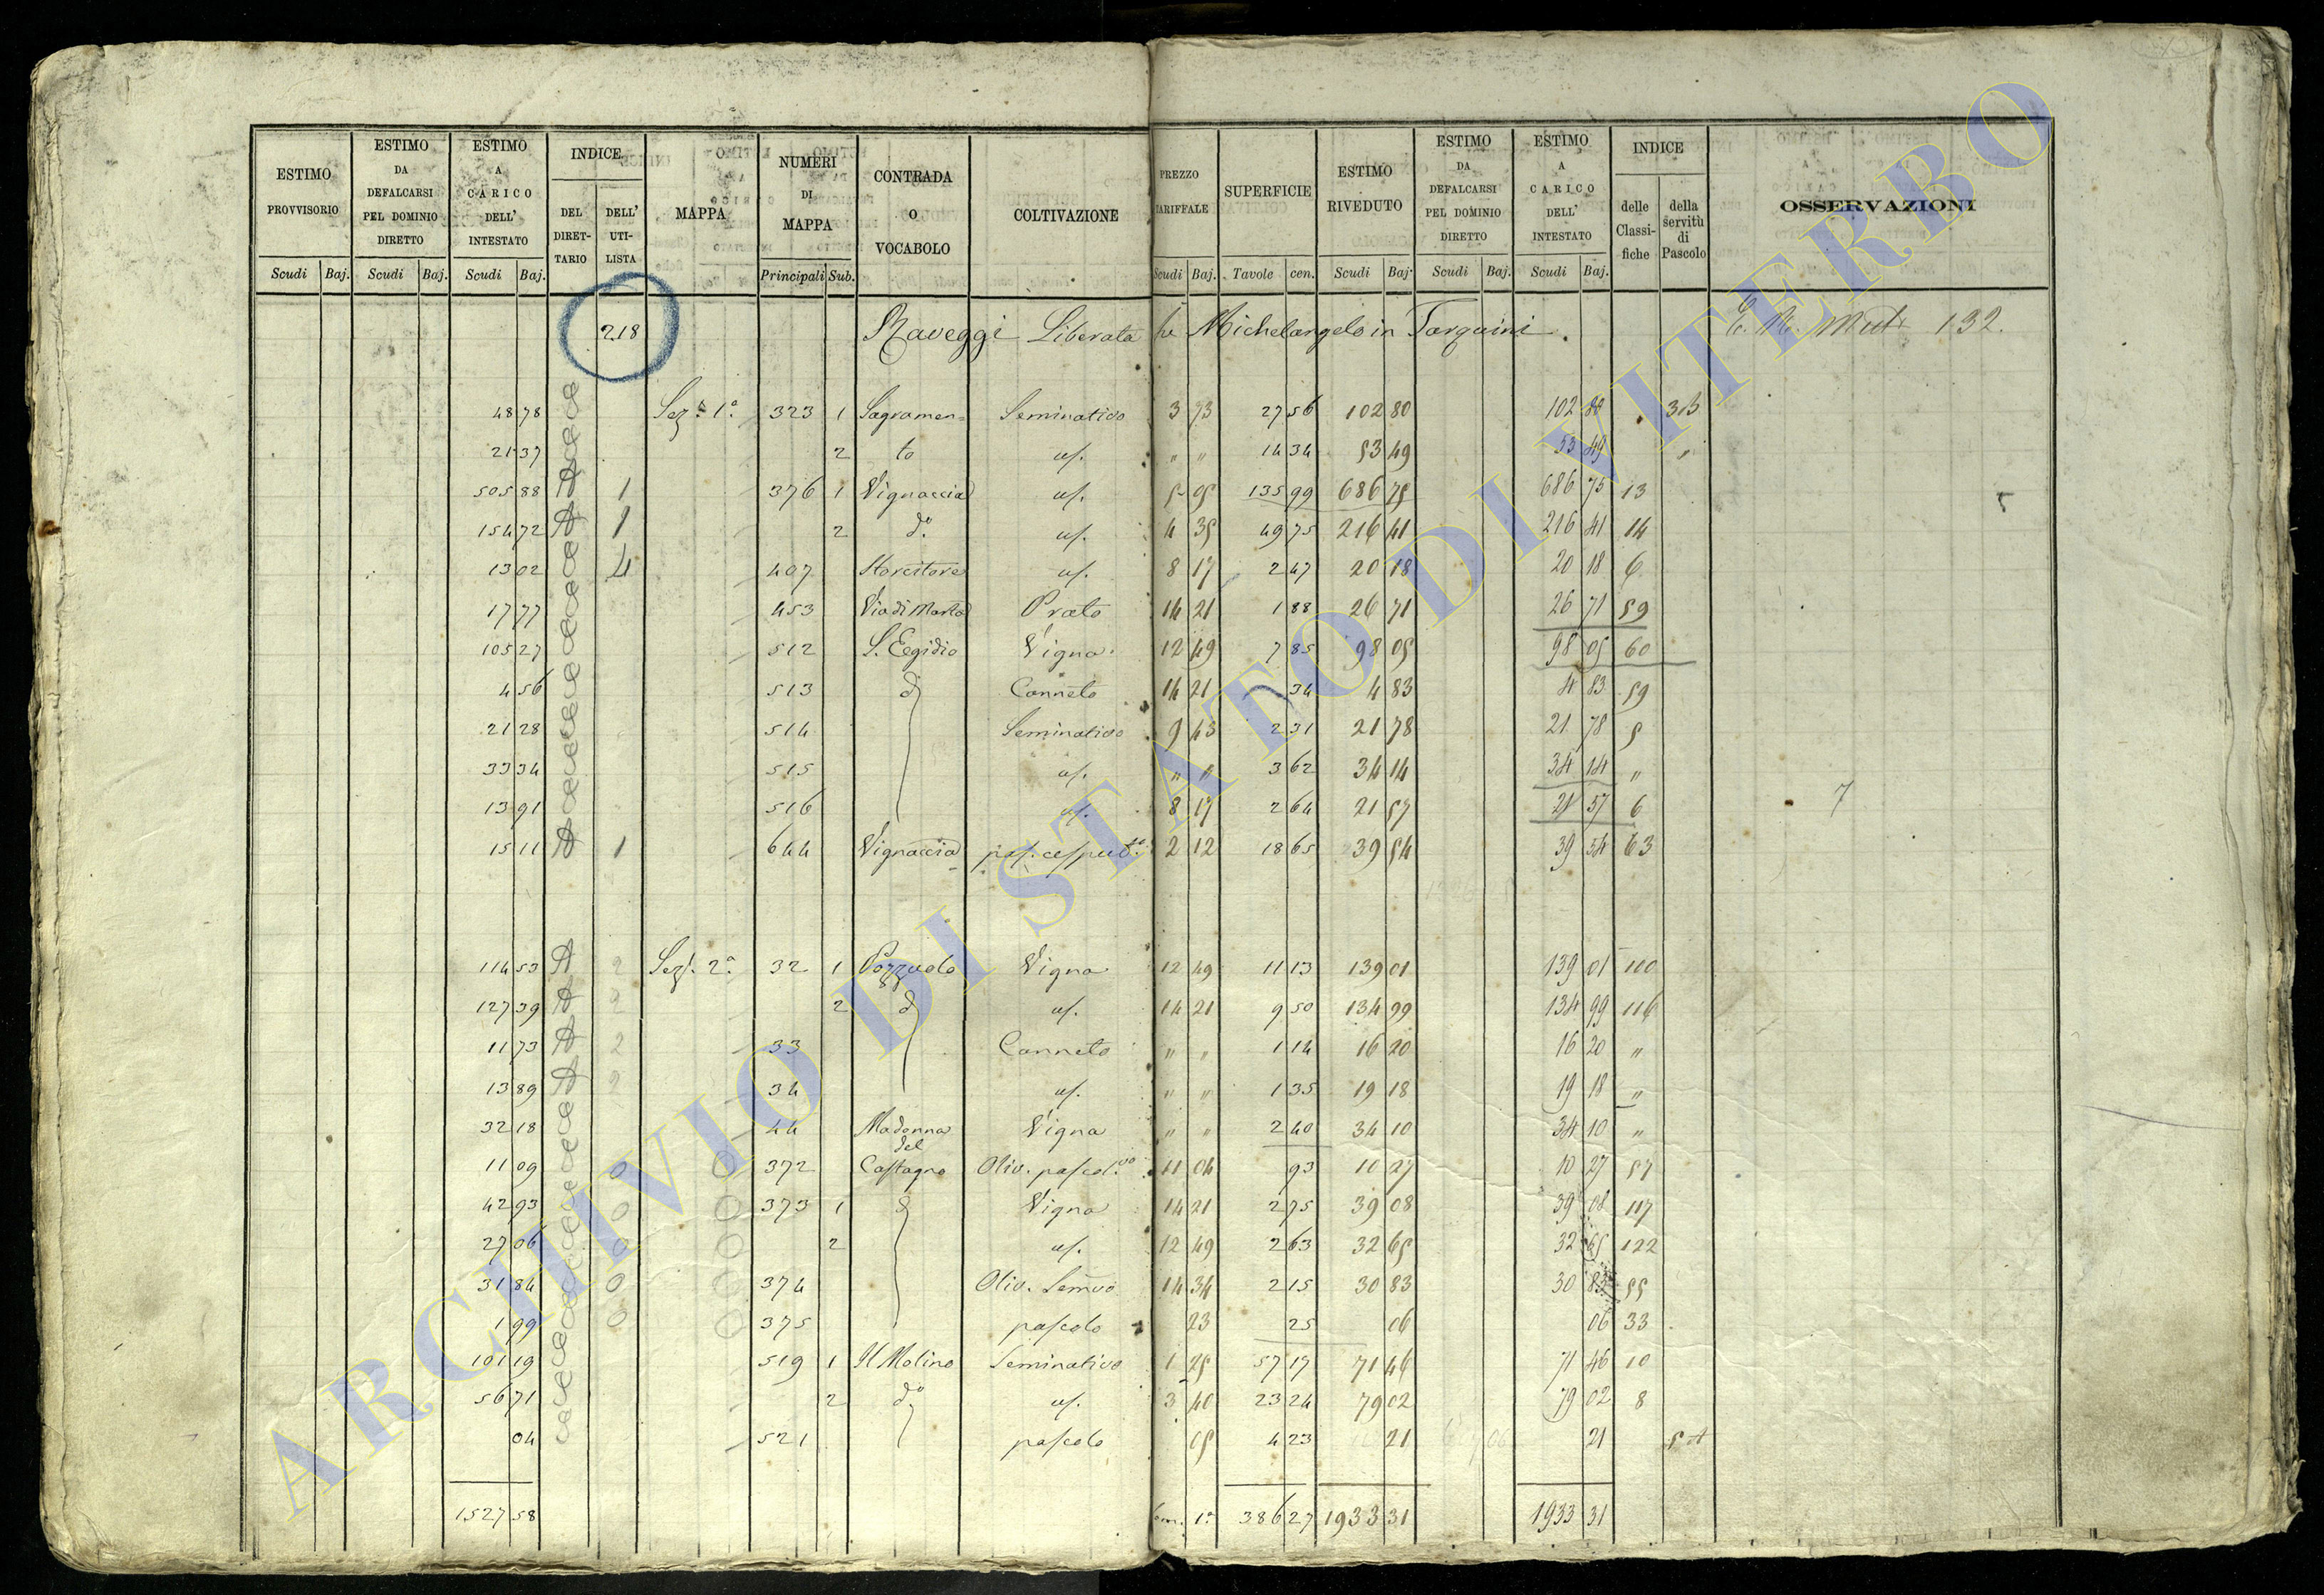 ESTIMO PROVVISORIO Scudi Baj.
ESTIMO DA DEFALCARSI PEL DOMINIO DIRETTO Scudi Baj.
ESTIMO A CARICO DELL' INTESTATO Scudi Baj.
INDICE DEL DIRETTARIO DELL' UTILISTA
MAPPA
NUMERI DI MAPPA Principali Sub.
CONTRADA O VOCABOLO
COLTIVAZIONE
PREZZO TARIFFALE Scudi Baj.
SUPERFICIE Tavole cen.
ESTIMO RIVEDUTO Scudi Baj
ESTIMO DA DEFALCARSI PEL DOMINIO DIRETTO Scudi Baj.
ESTIMO A CARICO DELL' INTESTATO Scudi Baj.
INDICE delle Classifiche della servitù di Pascolo
OSSERVAZIONI
218 Raveggi Liberata fu Michelangelo in Tarquini 132.
48 78 Sez. 1a. 323 1 Sagramen= Seminativo 3 73 27 56 102 80 102 80
21 37 2 to us. " " 14 34 53 49 53 49
505 88 A 1 376 1 Vignaccia us. 5 05 135 99 686 75 686 75 13
154 72 A 1 2 do. us. 4 35 49 75 216 41 216 41 14
13 02 4 407 us. 8 17 2 47 20 18 20 18 6
17 77 453 Via di Marta Prato 14 21 1 88 26 71 26 71 59
105 27 512 S. Egidio Vigna 12 49 7 85 98 05 98 05 60
4 56 513 d Canneto 14 21 34 4 83 4 83 59
21 28 514 Seminativo 9 43 2 31 21 78 21 78 5
33 34 515 us. " " 3 62 34 14 34 14 "
13 91 516 us. 8 17 2 64 21 57 21 57 6
15 11 A 1 644 Vignaccia pas. cespu 2 12 18 65 39 54 39 54 63
114 53 A 2 Sez. 2a. 32 1 Pozzuolo Vigna 12 49 11 13 139 01 139 01 110
127 39 A 2 2 d us. 14 21 9 50 134 99 134 99 116
11 73 A 2 33 Canneto " " 1 14 16 20 16 20 "
13 89 A 2 34 us. " " 1 35 19 18 19 18 "
32 18 44 Madonna del Vigna " " 2 40 34 10 34 10 "
11 09 0 0 372 Castagno Oliv. pascol.vo 11 04 93 10 27 10 27 57
42 93 0 0 373 1 d Vigna 14 21 2 75 39 08 39 08 117
27 06 0 0 2 us. 12 49 2 63 32 65 32 65 122
31 84 0 0 374 Oliv. Semvo 14 34 2 15 30 83 30 83 55
1 99 0 0 375 pascolo 23 25 06 06 33
101 19 519 1 Il Molino Seminativo 1 25 57 17 71 46 71 46 10
56 71 2 do us. 3 40 23 24 79 02 79 02 8
04 521 pascolo 05 4 23 21 21
1527 58 1a 386 27 1933 31 1933 31
7
ARCHIVIO DI STATO DI VITERBO